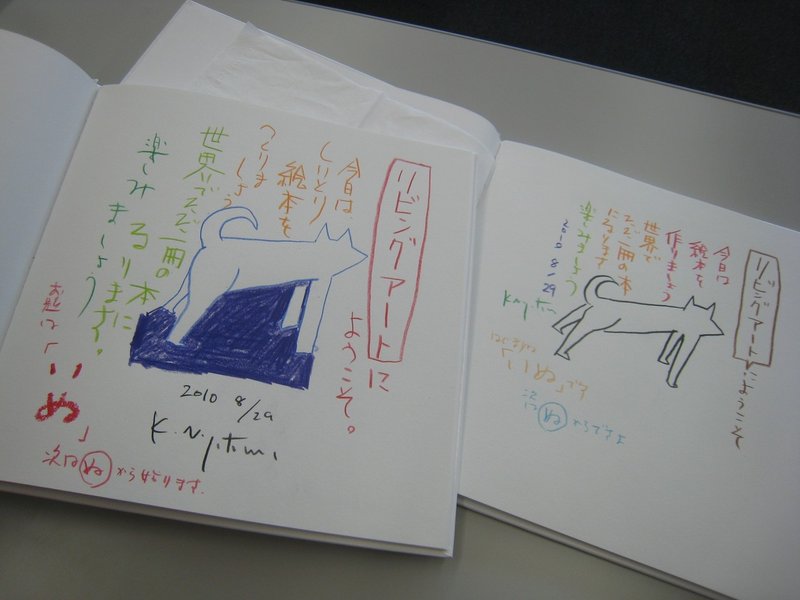 リビングアートに
ようこそ。
今日は、
しりとり
絵本を
つくりま
しょう
世界でただ一冊の本に
なります。
楽しみましょう
お題は「いぬ」
2010 8/29
次は ぬ から始まります。
リビングアートにようこそ
今日は
絵本を
作りましょう
世界で
ただ一冊の本
になります
楽しみましょう
2010 8/29
はじまりは
「いぬ」です
次は ぬ からですよ